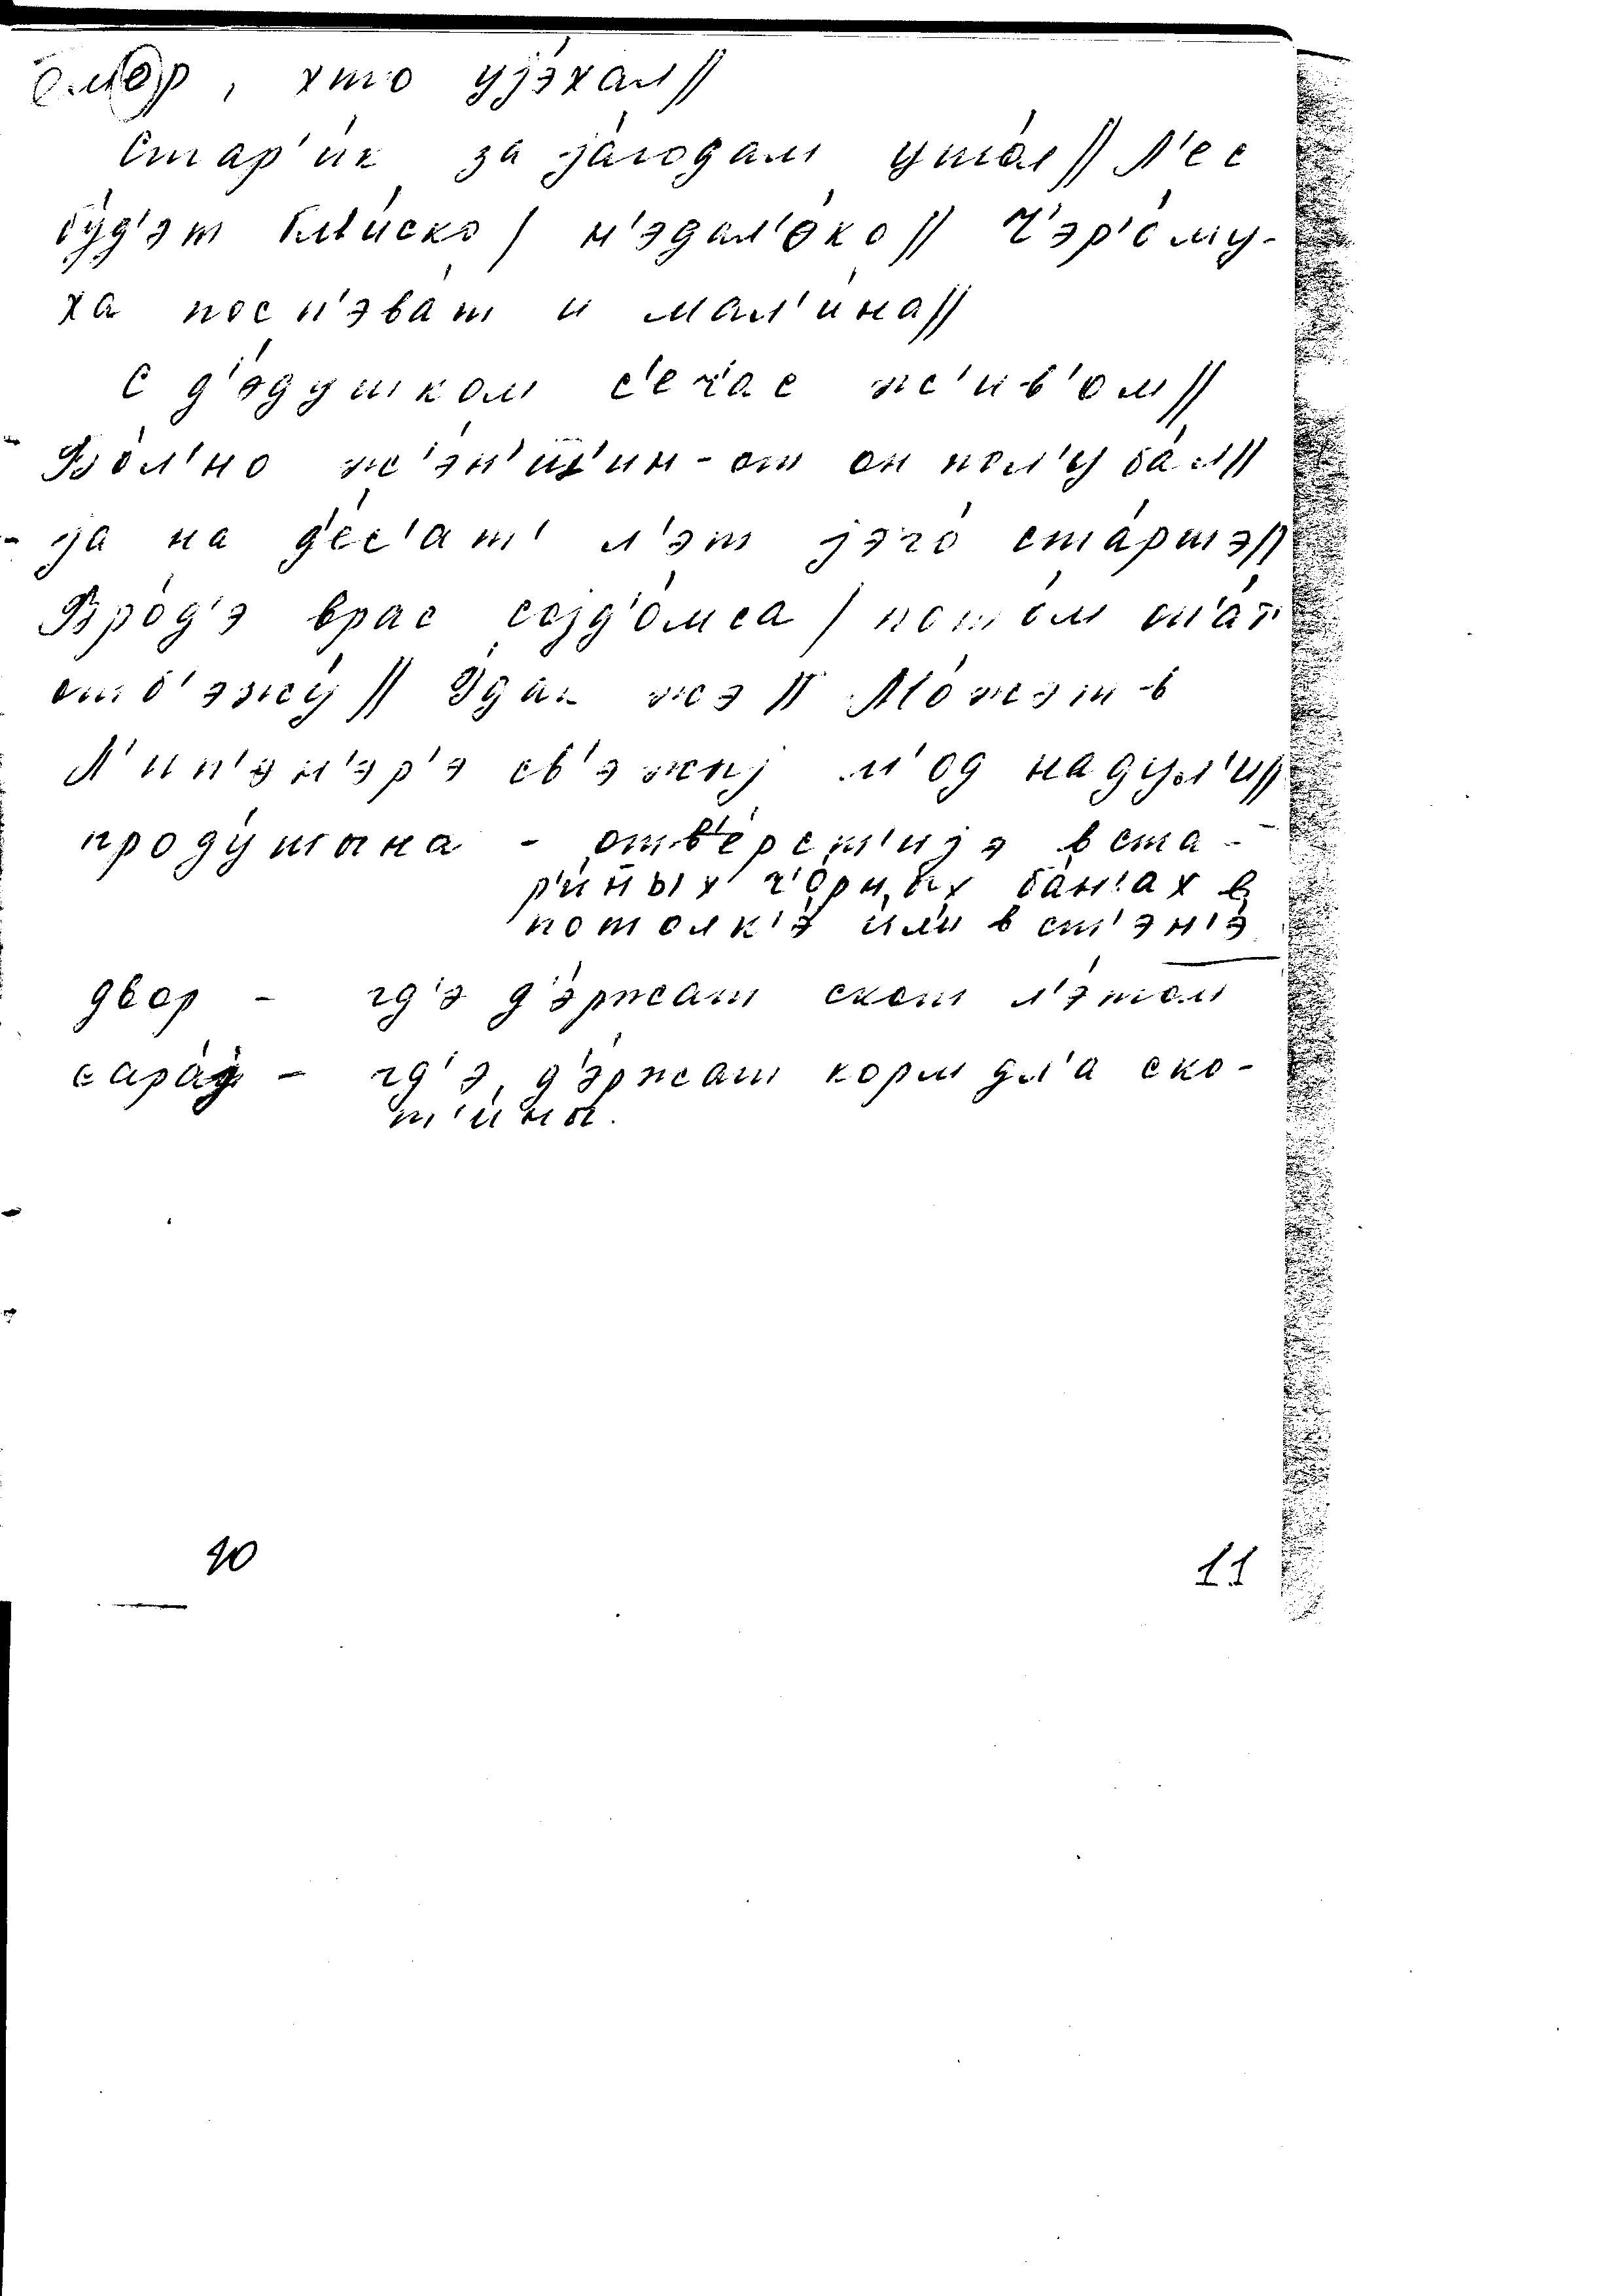 о́мер, хто уjэ́хал//
Стар'и́к за jа́годам ушо́л // Л'ес
бу́д'эт бл'и́ско / н'эдал'о́ко // Ч'эр'о́му-
ха посп'эва́т и мал'и́на//
С д'э́душком с'еч'а́с ж'ив'о́м//
Бо́л'но ж'э́н'ш'ин-от он пол'уба́л//
jа на д'е́с'ат' л'эт jэго́ ста́ршэ//
Вро́д'э врас соjд'о́мса / пото́м оп'а́т'
отб'эжу́ // Эда́к жэ // Мо́жэт в
Л'ип'эн'эр'э св'э́жыj м'од надул'и//
проду́шына - отв'е́рст'иjэ в ста-
р'и́нных ч'о́рных ба́н'ах в
потолк'э́ и́л'и в ст'эн'э́
двор - гд'э д'э́ржат скот л'э́том
сара́j - гд'э д'э́ржат корм дл'а ско-
т'и́ны.
10 11